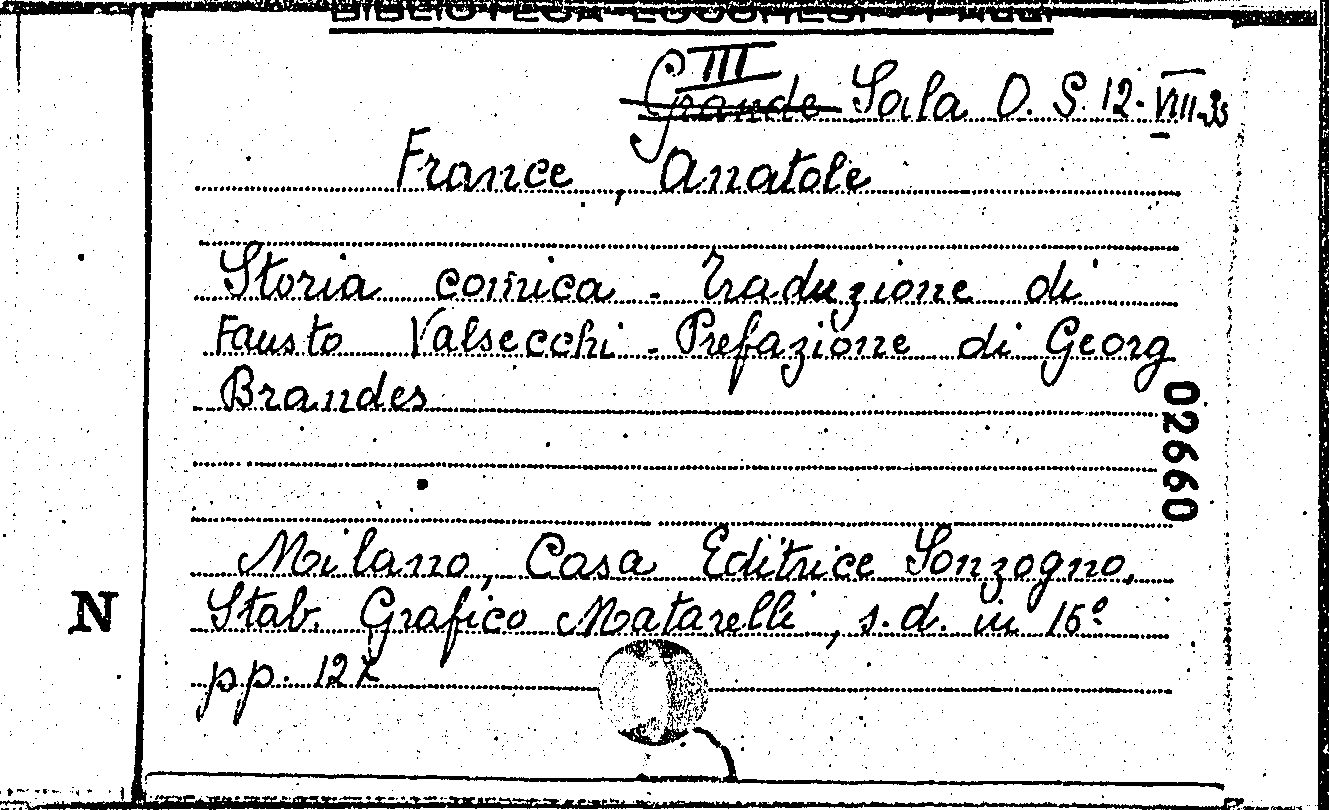 BIBLIOTECA LUCCHESI - PALLI
III
Grande Sala O. S. 12-VIII-35
France, Anatole
Storia comica - Traduzione di
Fausto Valsecchi - Prefazione di Georg
Brandes
02660
Milano, Casa Editrice Sonzogno,
N
Stab. Grafico Matarelli, s.d. in 16º
pp. 127